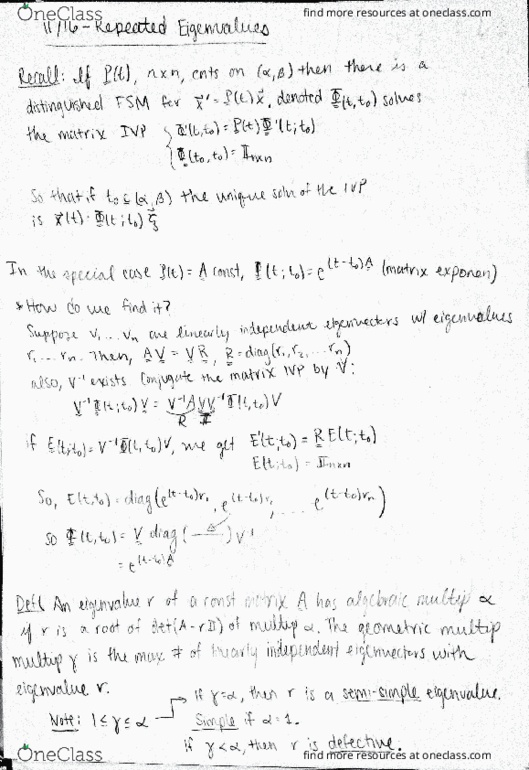 OneClass
find more resources at oneclass.com
11/16 - Repeated Eigenvalues
Recall: If P(t), n×n, cnts on (α,β) then there is a
distinguished FSM for x⃗' = P(t)x⃗, denoted Φ(t,t₀) solves
the matrix IVP { Φ'(t,t₀) = P(t)Φ'(t;t₀)
Φ(t₀,t₀) = I n×n
So that if t₀ ∈ (α,β) the unique soln of the IVP
is x⃗(t) = Φ(t;t₀) ξ⃗
In the special case P(t) = A const, Φ(t;t₀) = e^((t-t₀)A) (matrix exponen)
* How do we find it?
Suppose v₁ ... vₙ are linearly independent eigenvectors w/ eigenvalues
r₁ ... rₙ. Then, AV = VR, R = diag(r₁, r₂, ... rₙ)
also, V⁻¹ exists Conjugate the matrix IVP by V:
V⁻¹Φ'(t;t₀)V = V⁻¹AVV⁻¹Φ(t,t₀)V
R I
if E(t;t₀) = V⁻¹Φ(t,t₀)V, we get E'(t;t₀) = R E(t;t₀)
E(t₀;t₀) = I n×n
So, E(t,t₀) = diag(e^((t-t₀)r₁), e^((t-t₀)r₂), ... e^((t-t₀)rₙ))
so Φ(t,t₀) = V diag( ) V⁻¹
= e^((t-t₀)A)
Def: An eigenvalue r of a const matrix A has algebraic multip α
if r is a root of det(A-rI) of multip α. The geometric multip
multip γ is the max # of linearly independent eigenvectors with
eigenvalue r.
if γ=α, then r is a semi-simple eigenvalue.
Note: 1 ≤ γ ≤ α → Simple if α=1.
if γ<α, then r is defective.
OneClass
find more resources at oneclass.com